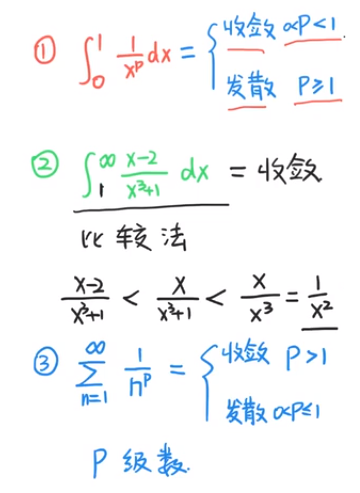 ① ∫₀¹ 1/x^p dx = { 收敛 0<P<1
发散 P≥1
② ∫₁^∞ (x-2)/(x³+1) dx = 收敛
比较法
(x-2)/(x³+1) < x/(x³+1) < x/x³ = 1/x²
③ ∑_{n=1}^∞ 1/n^p = { 收敛 P>1
发散 0<P≤1
P 级数.